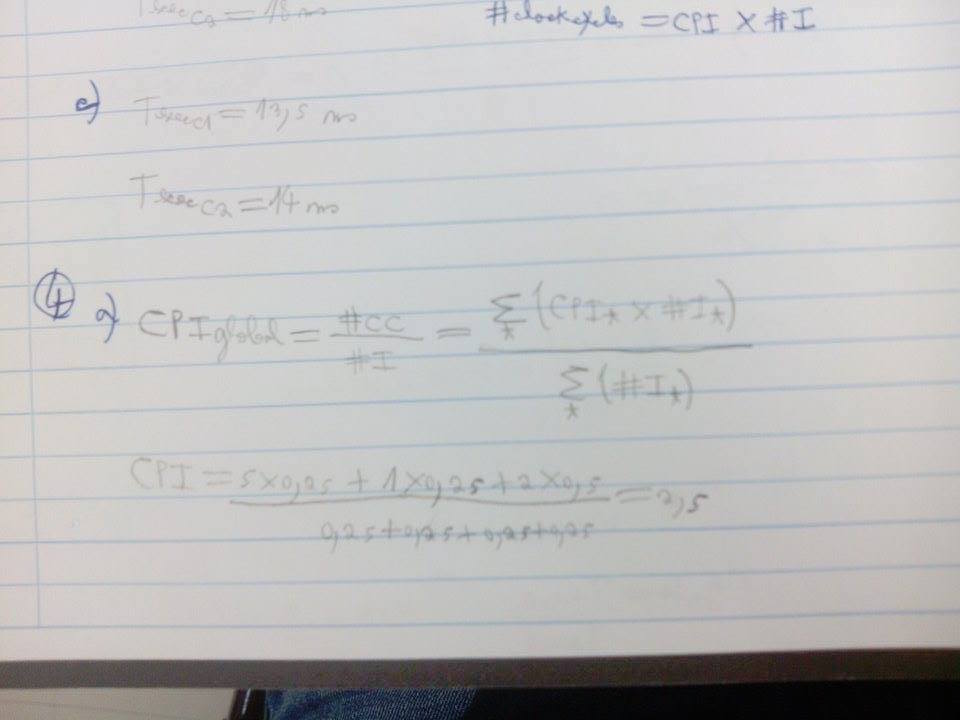 Texec C3 = 18 ms
#clockcycles = CPI X #I
c) Texec C1 = 13,5 ms
Texec C2 = 14 ms
4 a) CPIglobal = #CC / #I = Σ* (CPI* X #I*) / Σ* (#I*)
CPI = 5X0,25 + 1X0,25 + 2X0,5 = 2,5
0,25+0,25+0,25+0,25